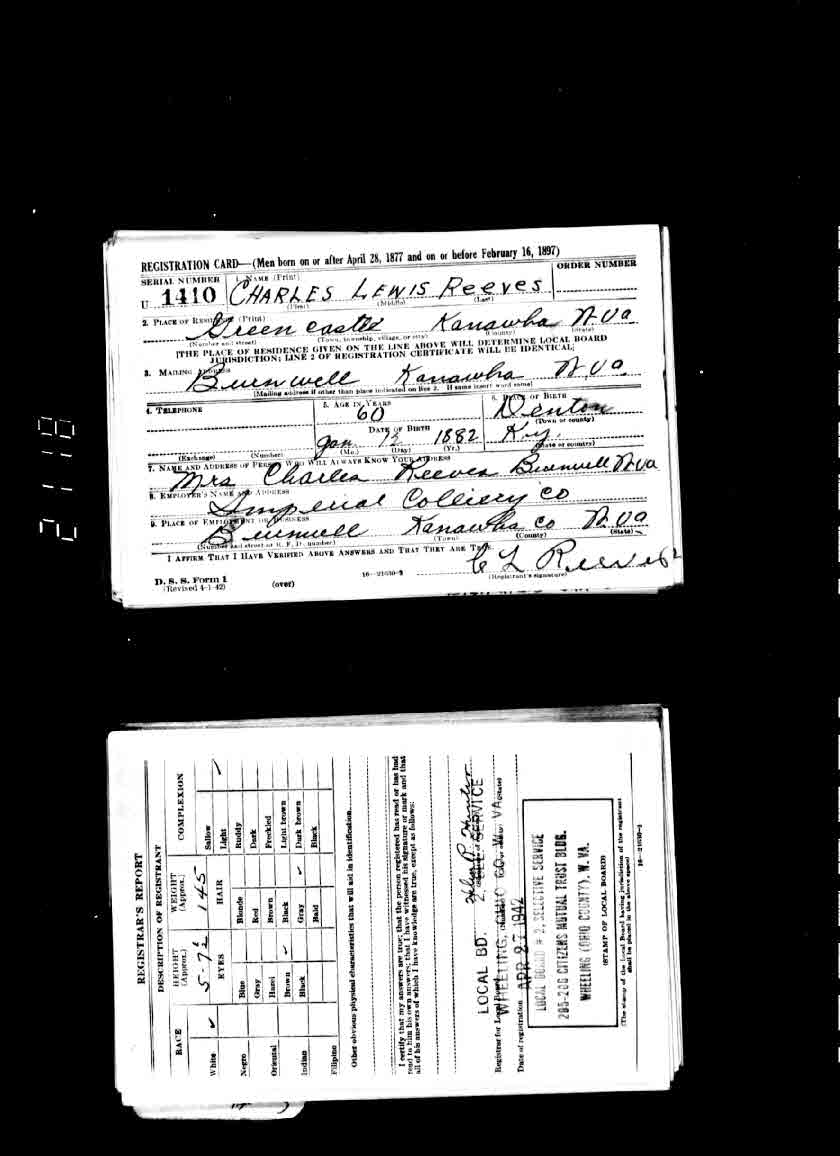 REGISTRATION CARD—(Men born on or after April 28, 1877 and on or before February 16, 1897)
SERIAL NUMBER 1. NAME (Print) ORDER NUMBER
U 1410 CHARLES LEWIS Reeves
(First) (Middle) (Last)
2. PLACE OF RESIDENCE (Print)
Green castle Kanawha W. Va
(Number and street) (Town, township, village, or city) (County) (State)
[THE PLACE OF RESIDENCE GIVEN ON THE LINE ABOVE WILL DETERMINE LOCAL BOARD
JURISDICTION; LINE 2 OF REGISTRATION CERTIFICATE WILL BE IDENTICAL]
3. MAILING ADDRESS
Burnwell Kanawha W. Va.
[Mailing address if other than place indicated on line 2. If same insert word same]
4. TELEPHONE 5. AGE IN YEARS 6. PLACE OF BIRTH
60 Denton
(Town or county)
DATE OF BIRTH
Jan. 1882 Ky.
(Exchange) (Number) (Mo.) (Day) (Yr.) (State or country)
7. NAME AND ADDRESS OF PERSON WHO WILL ALWAYS KNOW YOUR ADDRESS
Mrs Charles Reeves Burnwell W Va
8. EMPLOYER'S NAME AND ADDRESS
Imperial Colliery Co
9. PLACE OF EMPLOYMENT OR BUSINESS
Burnwell Kanawha Co W. Va
(Number and street or R. F. D. number) (Town) (County) (State)
I AFFIRM THAT I HAVE VERIFIED ABOVE ANSWERS AND THAT THEY ARE TRUE.
C L Reeves
D. S. S. Form 1
(Revised 4-1-42) (over) 16—21630-2 (Registrant's signature)
2118
REGISTRAR'S REPORT
DESCRIPTION OF REGISTRANT
RACE HEIGHT (Approx.) WEIGHT (Approx.) COMPLEXION
5-7½ 145
White ✓ EYES HAIR Sallow
Light ✓
Negro Blue Blonde Ruddy
Gray Red Dark
Oriental Hazel Brown Freckled
Brown ✓ Black Light brown
Indian Black Gray ✓ Dark brown
Filipino Bald Black
Other obvious physical characteristics that will aid in identification
I certify that my answers are true; that the person registered has read or has had
read to him his own answers; that I have witnessed his signature or mark and that
all of his answers of which I have knowledge are true, except as follows:
LOCAL BD. 2, SEL. SERVICE
WHEELING, OHIO CO. W. VA
Registrar for Local Board
Date of registration APR 27 1942
LOCAL BOARD # 2, SELECTIVE SERVICE
205-206 CITIZENS MUTUAL TRUST BLDG.
WHEELING (OHIO COUNTY), W. VA.
(STAMP OF LOCAL BOARD)
(The stamp of the Local Board having jurisdiction of the registrant
shall be placed in the above space)
16—21630-2